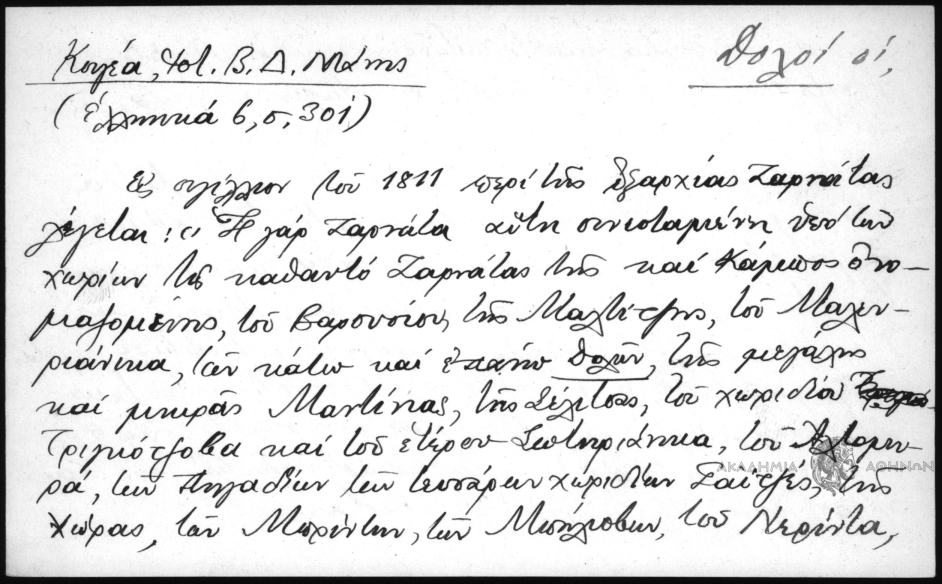 Κουγέα, Ἱστ. Β. Δ. Μάνης
Θολοί οἱ,
(Ἑλληνικά 6, σ. 301)
Εἰς σιγίλλιον τοῦ 1811 περί τῆς ἐξαρχίας Ζαρνάτας
λέγεται: «Ἡ γάρ Ζαρνάτα αὕτη συνισταμένη ὑπό τῶν
χωρίων τῆς καθαυτό Ζαρνάτας τῆς καί Κάμπος ὀνο-
μαζομένης, τοῦ Βαρουσίου, τῆς Μαλτίτζης, τοῦ Μαλευ-
ριάνικα, τῶν κάτω καί ἐπάνω Θολῶν, τῆς μεγάλης
καί μικρᾶς Μαντίνιας, τῆς Σέλιτσας, τοῦ χωριδίου
Τρικότζοβα καί τοῦ ἑτέρου Σωτηριάνικα, τοῦ Ἀλτομυ-
ρά, τῶν Πηγαδίων τῶν τεσσάρων χωριδίων Γαΐτζες, τῆς
Χώρας, τῶν Μπρίντων, τῶν Μπηλιοβων, τοῦ Νερίντα,
ΑΚΑΔΗΜΙΑ ΑΘΗΝΩΝ